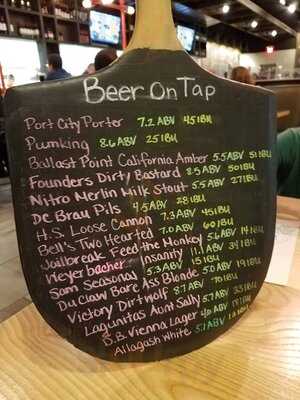 Beer On Tap
Port City Porter 7.2 ABV 45 IBU
Pumking 8.6 ABV 25 IBU
Ballast Point California Amber 5.5 ABV 51 IBU
Founders Dirty Bastard 8.5 ABV 50 IBU
Nitro Merlin Milk Stout 5.5 ABV 27 IBU
DC Brau Pils 4.5 ABV 28 IBU
H.S. Loose Cannon 7.3 ABV 45 IBU
Bell's Two Hearted 7.0 ABV 60 IBU
Jailbreak Feed the Monkey 5.6 ABV 14 IBU
Weyerbacher Insanity 11.1 ABV 39 IBU
Sam Seasonal 5.3 ABV 15 IBU
Du Claw Bare Ass Blonde 5.0 ABV 19 IBU
Victory Dirtwolf 8.7 ABV 70 IBU
Lagunitas Aunt Sally 5.7 ABV 33 IBU
D.B. Vienna Lager ABV IBU
Allagash White 5.1 ABV